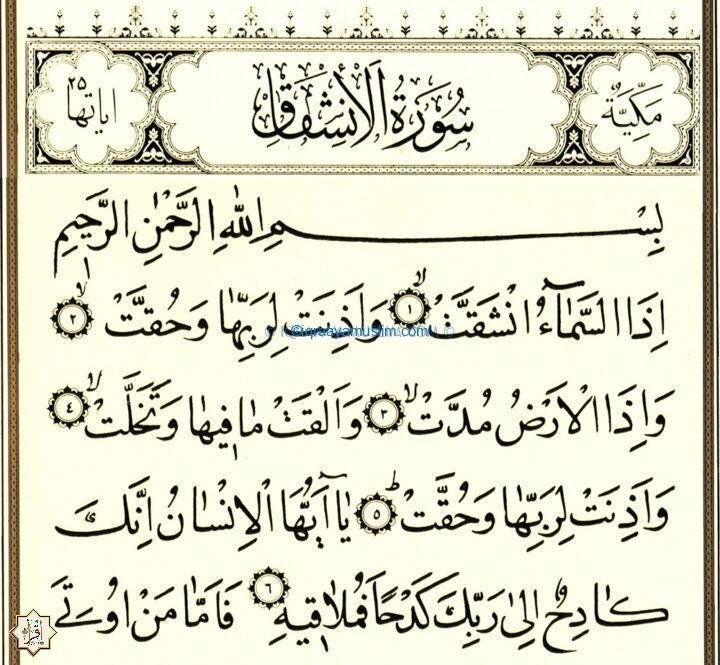 مَكِّيَّةٌ سُورَةُ الْاِنْشِقَاقِ اياتها ٢٥
بِسْمِ اللهِ الرَّحْمٰنِ الرَّحِيمِ
اِذَا السَّمَٓاءُ انْشَقَّتْۙ ١ وَاَذِنَتْ لِرَبِّهَا وَحُقَّتْۙ ٢
وَاِذَا الْاَرْضُ مُدَّتْۙ ٣ وَاَلْقَتْ مَا فِيهَا وَتَخَلَّتْۙ ٤
وَاَذِنَتْ لِرَبِّهَا وَحُقَّتْۜ ٥ يَٓا اَيُّهَا الْاِنْسَانُ اِنَّكَ
كَادِحٌ اِلٰى رَبِّكَ كَدْحًا فَمُلَاقِيهِ ٦ فَاَمَّا مَنْ اُو۫تِيَ